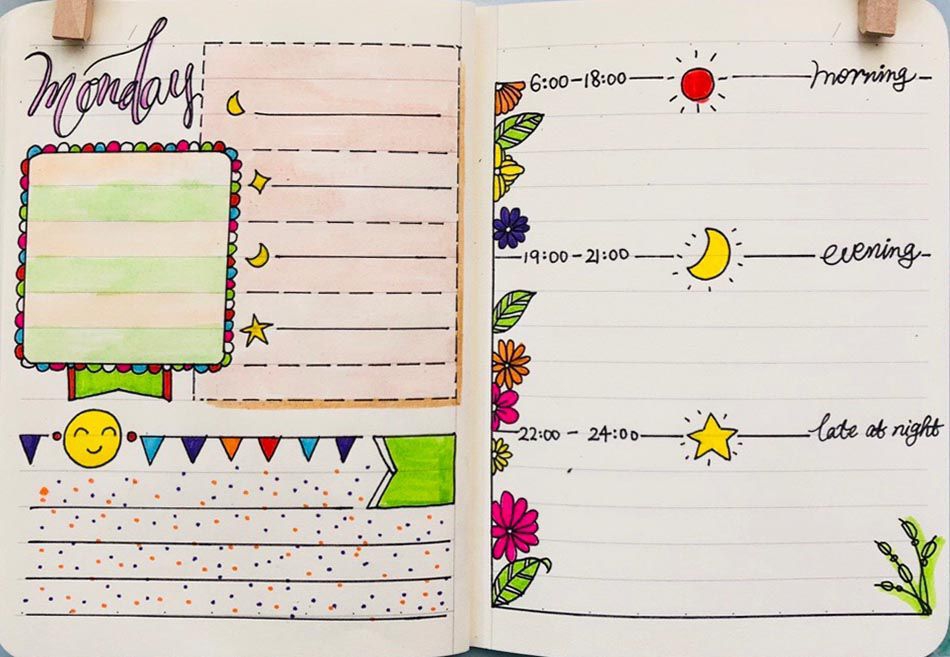 Monday
6:00-18:00 morning
19:00-21:00 evening
22:00 - 24:00 late at night